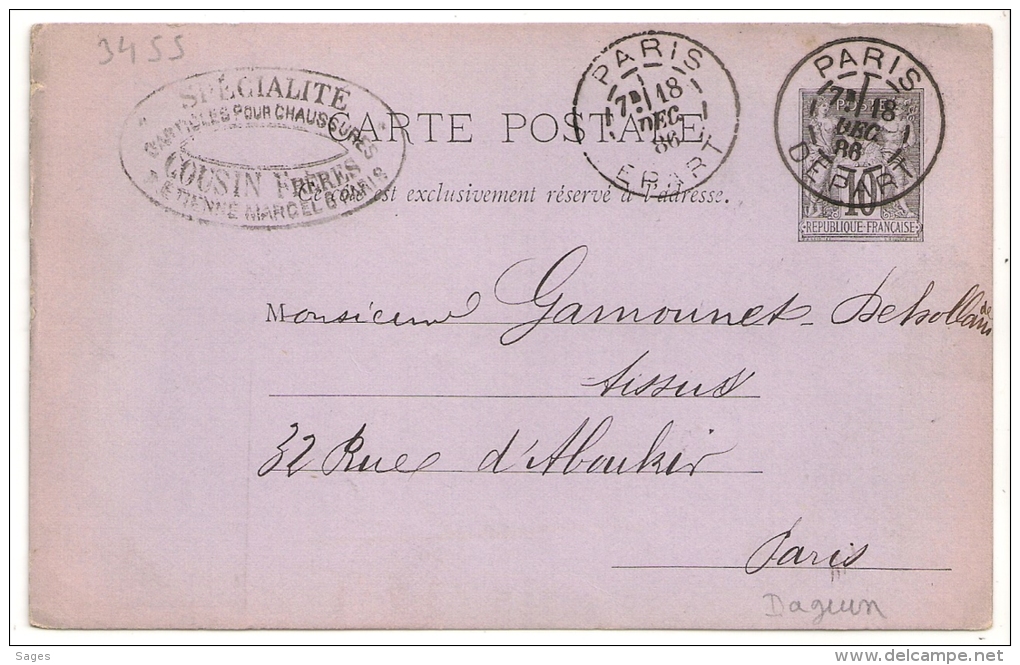 3455
SPÉCIALITÉ
D'ARTICLES POUR CHAUSSURES
COUSIN FRÈRES
R. ETIENNE MARCEL PARIS
CARTE POSTALE
Ce côté est exclusivement réservé à l'adresse.
PARIS
18
DEC
86
DEPART
PARIS
18
DEC
86
DEPART
POSTE
10
REPUBLIQUE FRANÇAISE
Monsieur Gamounet-Dehollande
tissus
32 Rue d'Aboukir
Paris
Daguin
Sages
delcampe.net